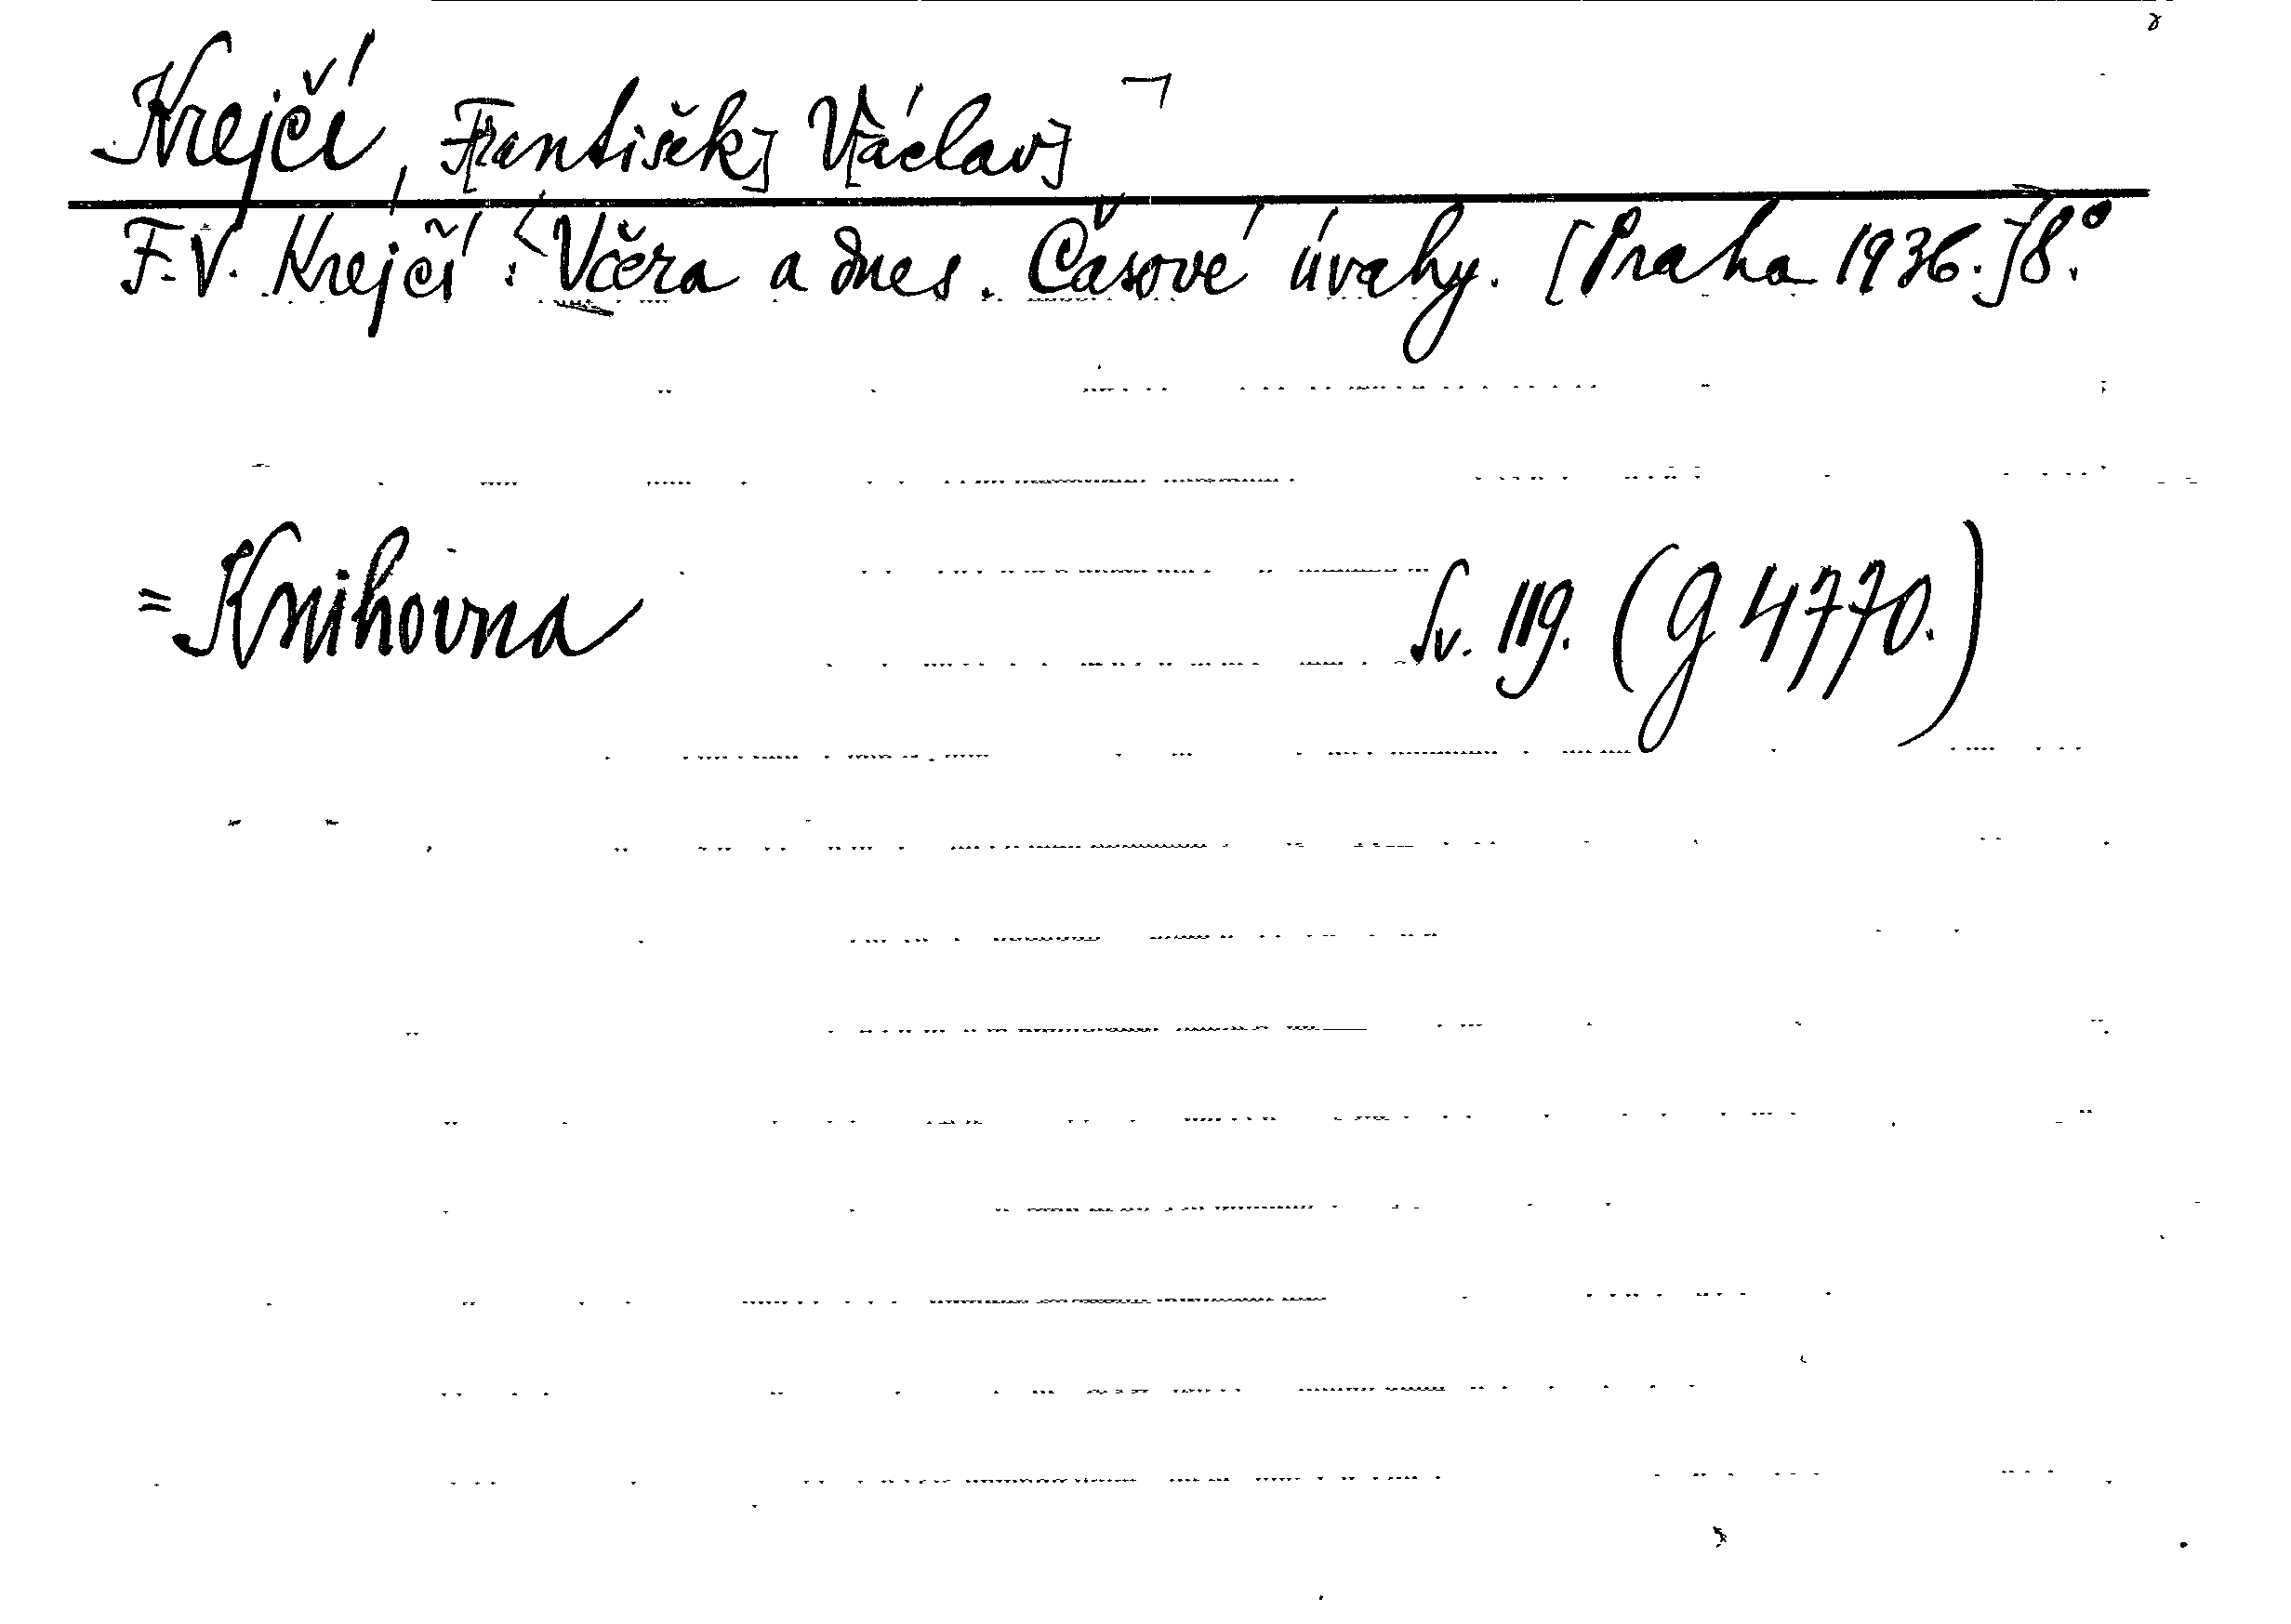 Krejčí, F[rantišek] V[áclav]
F. V. Krejčí: Včera a dnes. Časové úvahy. [Praha 1936.] 8.°
= Knihovna Sv. 119. (g 4770.)